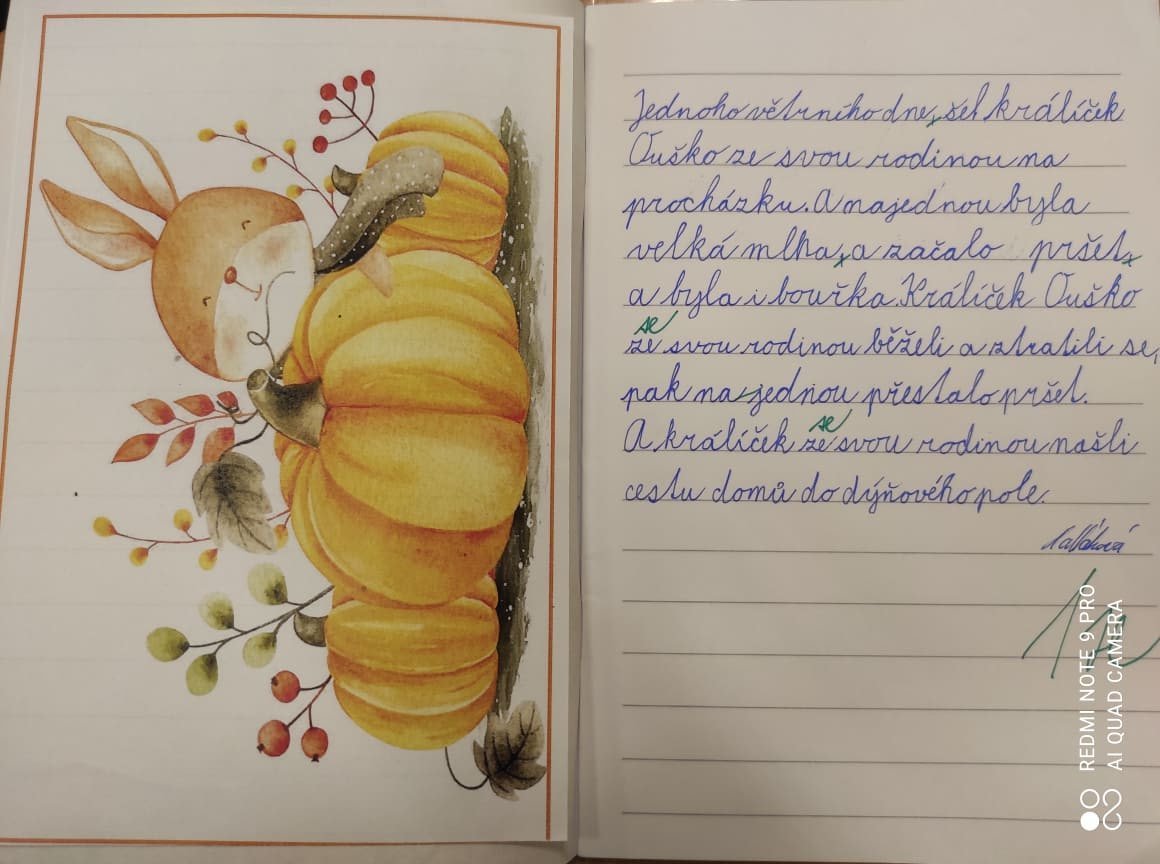 Jednoho větrního dne, šel králíček
Ouško ze svou rodinou na
procházku. A najednou byla
velká mlha, a začalo pršet,
a byla i bouřka. Králíček Ouško
se
ze svou rodinou běželi a ztratili se,
pak na jednou přestalo pršet.
se
A králíček ze svou rodinou našli
cestu domů do dýňového pole.
1
REDMI NOTE 9 PRO
AI QUAD CAMERA